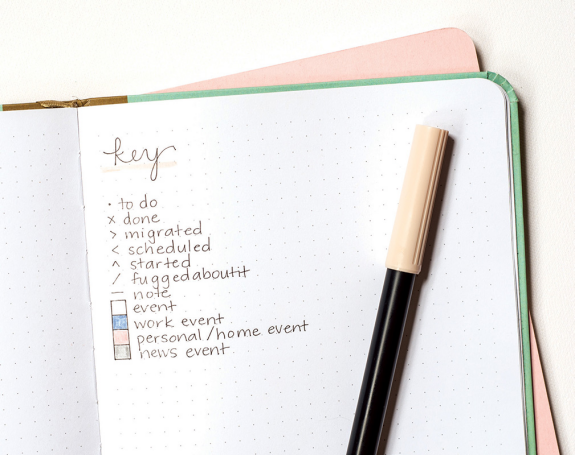 key
· to do
x done
> migrated
< scheduled
^ started
/ fuggedaboutit
— note
event
work event
personal/home event
news event